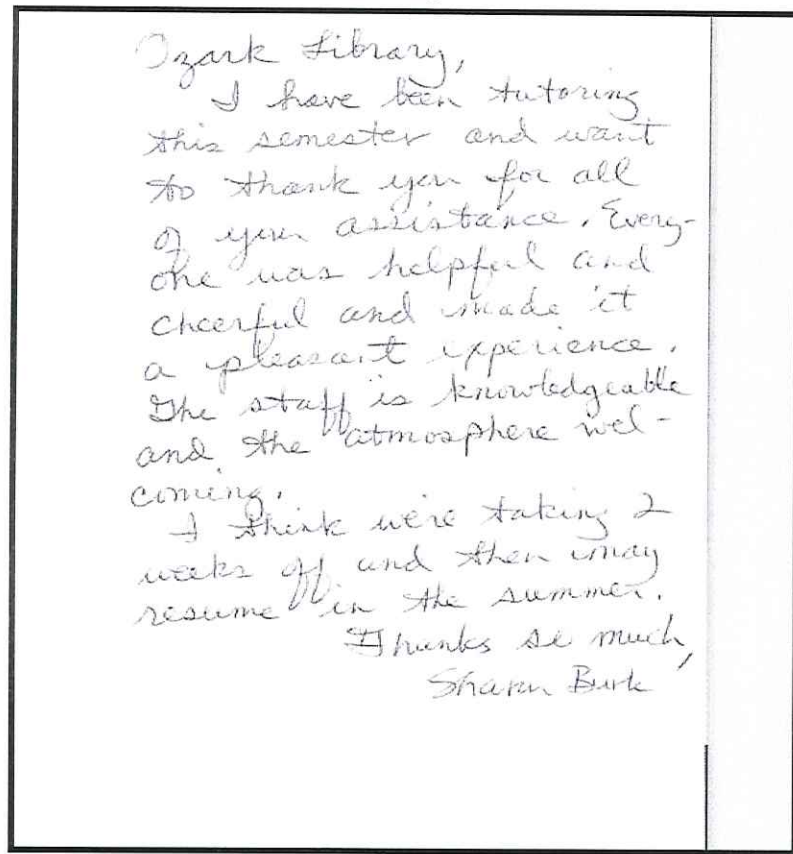 Ozark Library,
I have been tutoring
this semester and want
to thank you for all
of your assistance. Every-
one was helpful and
cheerful and made it
a pleasant experience.
The staff is knowledgeable
and the atmosphere wel-
coming.
I think we're taking 2
weeks off and then may
resume in the summer.
Thanks so much,
Sharon Burk